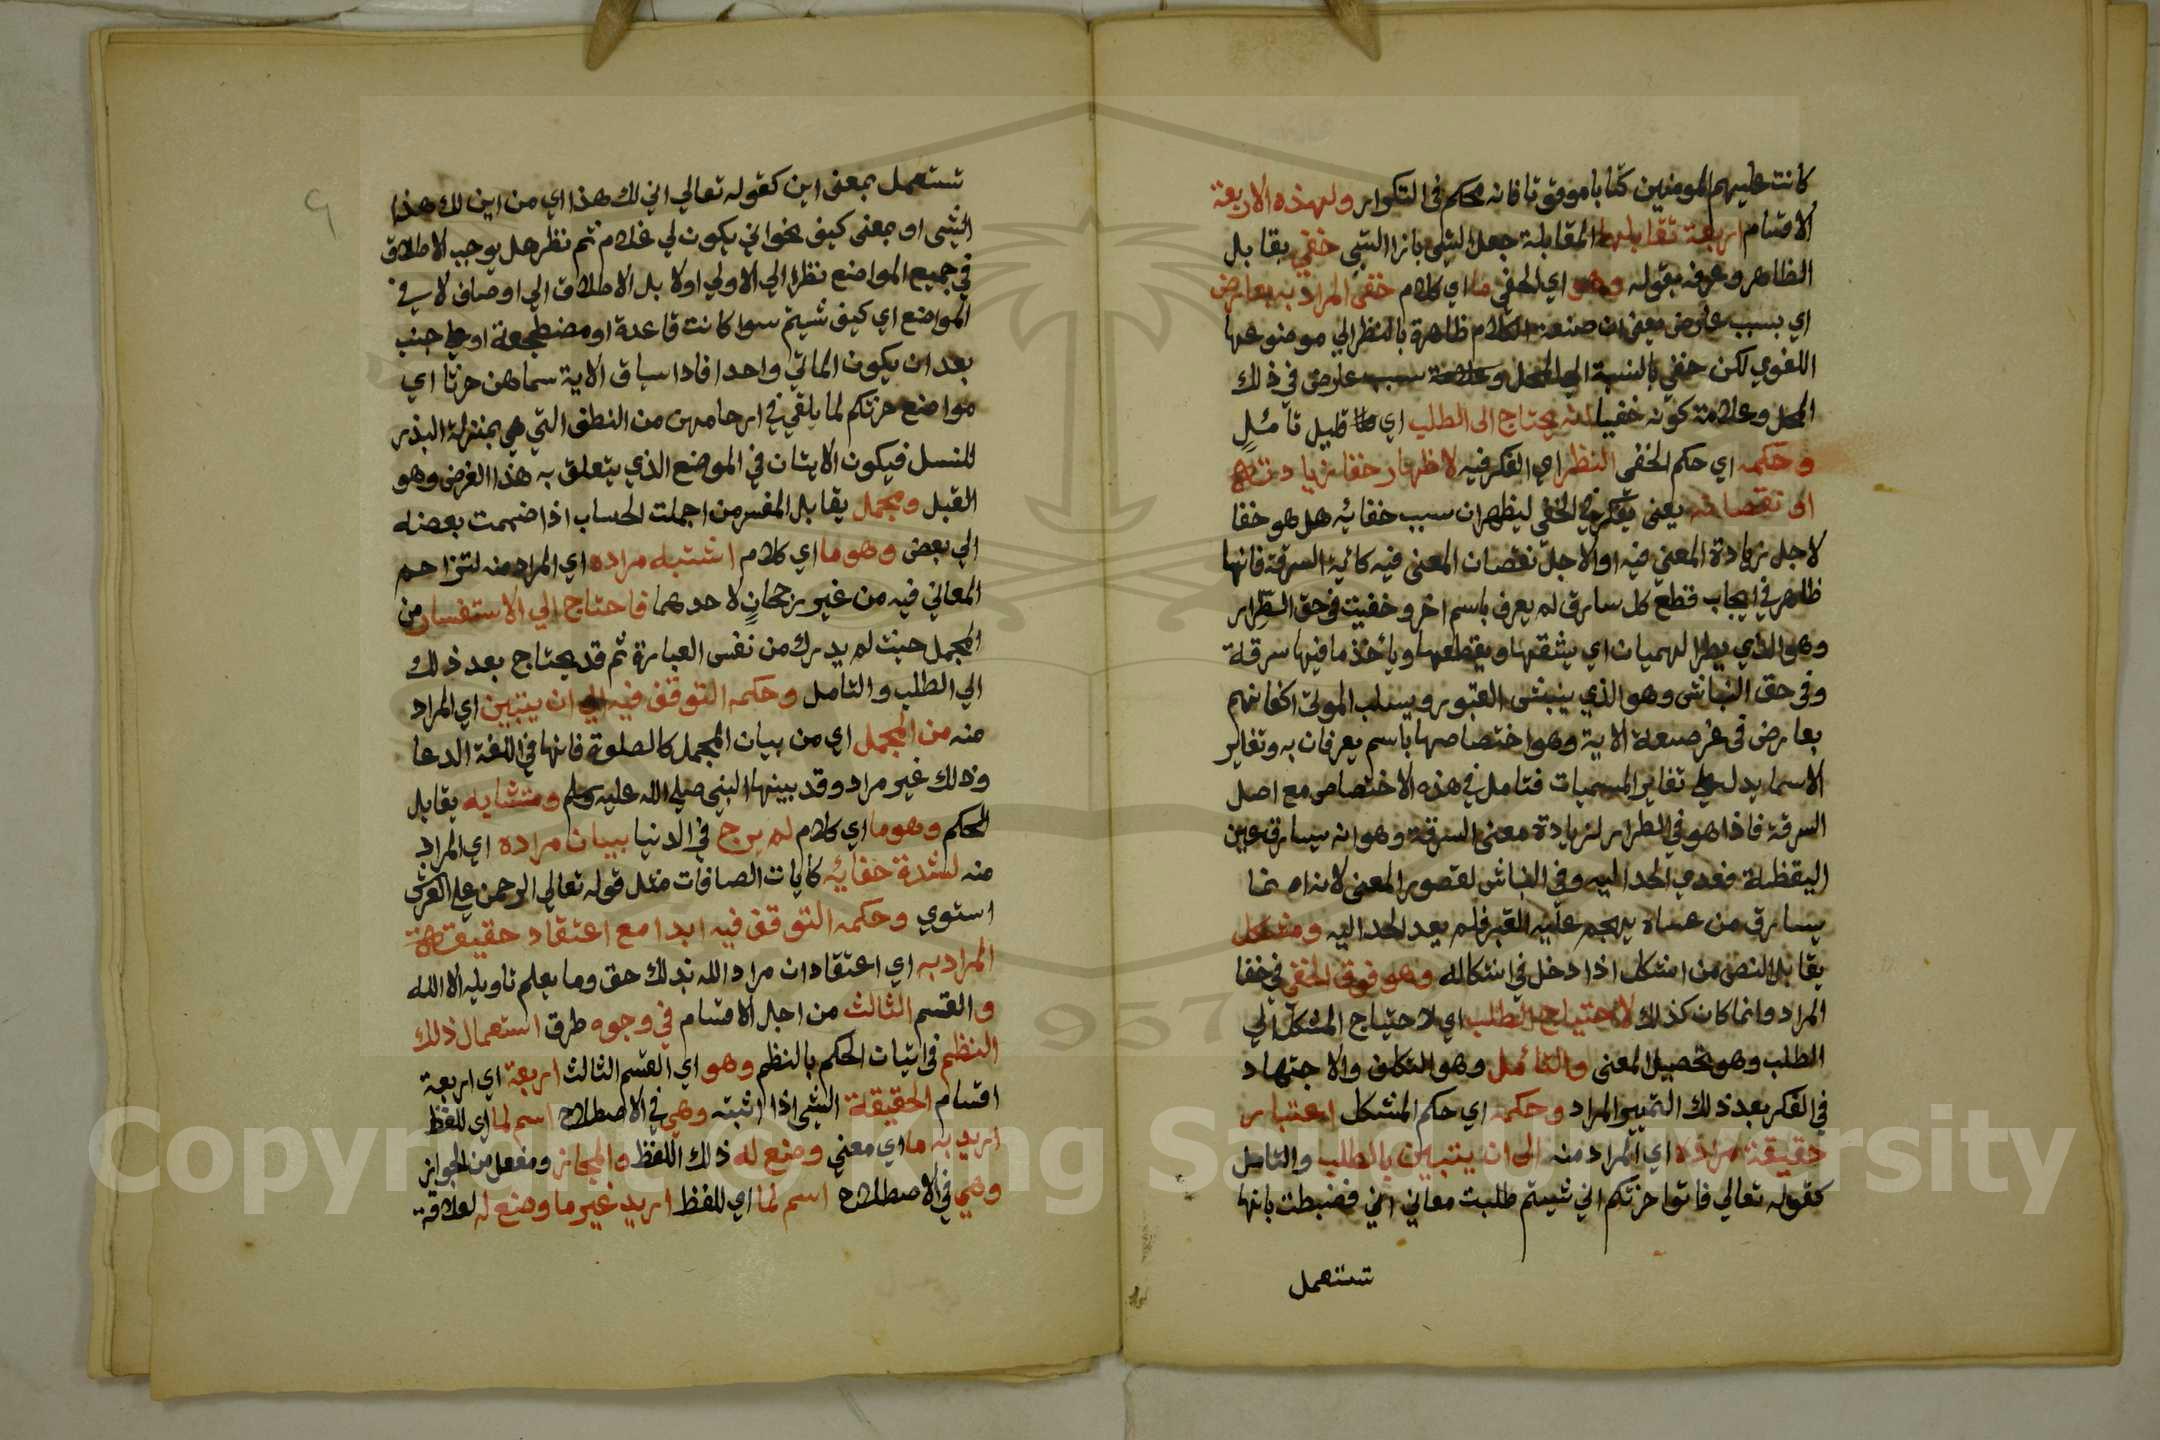 كانت عليهم المومنين كتابا موقوتا فانه محكم في التكرار ولهذه الاربعة
الاقسام اربعة تقابلها المقابلة جعل الشي بازا الشي خفي يقابل
الظاهر وعرفه بقوله وهو اي الخفي ما اي كلام خفى المراد به بعارض
اي بسبب عارض يعني ان صنعة الكلام ظاهرة بالنظر الي موضوعها
اللغوي لكن خفي بالنسبة الي المحل بسبب عارض في ذلك
المحل وعلامة كونه خفيا انه يحتاج الى الطلب اي قليل تامل
وحكمه اي حكم الخفى النظر اي الفكر فيه لاظهار خفائه زيادته
او نقصانه يعني يتفكر في الخفي ليظهر ان سبب خفائه هل هو خفا
لاجل زيادة المعني فيه او لاجل نقصان المعنى فيه كاية السرقة فانها
ظاهر في ايجاب قطع كل سارق لم يعرف باسم اخر وخفيت في حق الطرار
وهو الذي يطر الهميان اي يشقها ويقطعها وياخذ ما فيها سرقة
وفي حق النباش وهو الذي ينبش القبور ويسلب الموتى اكفانهم
بعارض في غير صيغة الاية وهو اختصاصها باسم يعرفان به وتغاير
الاسما يدل على تغاير المسميات فتامل في هذه الاختصاص مع اصل
السرقة فاذا هو في الطرار لزيادة معنى السرقة وهو انه يسارق عين
اليقظة فعدي الحد اليه وفي النباش لقصور المعنى لانه انما
يسارق من عساه يهجم عليه القبر فلم يعد الحد اليه ومشكل
يقابل النص من اشكل اذا دخل في اشكاله وهو فوق الخفي في خفا
المراد وانما كان كذلك لاحتياج الطلب اي لاحتياج المشكل الي
الطلب وهو تحصيل المعنى والتامل وهو التكلف والاجتهاد
في الفكر بعد ذلك التمييز المراد وحكمه اي حكم المشكل اعتبار
حقيقة مراده اي المراد منه الى ان يتبين بالطلب والتامل
كقوله تعالي فاتوا حرثكم اني شيتم طلبت معاني اني فضبطت بانها
تستعمل
تستعمل بمعنى اين كقوله تعالي اني لك هذا اي من اين لك هذا
الشي او بمعنى كيف نحو اني يكون لي غلام ثم نظر هل يوجب الاطلاق
في جميع المواضع نظرا الي الاولي اولا بل الاطلاق الي اوصاف لا في
المواضع اي كيف شيتم سوا كانت قاعدة او مضطجعة او على جنب
بعد ان يكون الماتي واحدا فاذا سياق الاية سماهن حرثا اي
مواضع حرثكم لما يلقي في ارحامهن من النطف التي هي بمنزلة البذر
للنسل فيكون الاتيان في الموضع الذي يتعلق به هذا الغرض وهو
القبل ومجمل يقابل المفسر من اجملت الحساب اذا ضممت بعضه
الي بعض وهو ما اي كلام اشتبه مراده اي المراد منه لتزاحم
المعاني فيه من غير رجحان لاحدهما فاحتاج الي الاستفسار من
المجمل حيث لم يدرك من نفس العبارة ثم قد يحتاج بعد ذلك
الي الطلب والتامل وحكمه التوقف فيه الي ان يتبين اي المراد
منه من المجمل اي من بيان المجمل كالصلوة فانها في اللغة الدعا
وذلك غير مراد وقد بينها النبي صلي الله عليه وسلم ومتشابه يقابل
المحكم وهو ما اي كلام لم يرج في الدنيا بيان مراده اي المراد
منه لشدة خفائه كايات الصافات مثل قوله تعالي الرحمن علي العرش
استوي وحكمه التوقف فيه ابدا مع اعتقاد حقيقة
المراد به اي اعتقاد ان مراد الله بذلك حق وما يعلم تاويله الا الله
والقسم الثالث من اجل الاقسام في وجوه طرق استعمال ذلك
النظم في اثبات الحكم بالنظم وهو اي القسم الثالث اربعة اي اربعة
اقسام الحقيقة الشي اذا اثبته وهي في الاصطلاح اسم لما اي للفظ
اريد به ما اي معني وضع له ذلك اللفظ والمجاز ومفعل من الجواز
وهي في الاصطلاح اسم لما اي للفظ اريد غير ما وضع له لعلاقة
957
Copyright © King Saud University